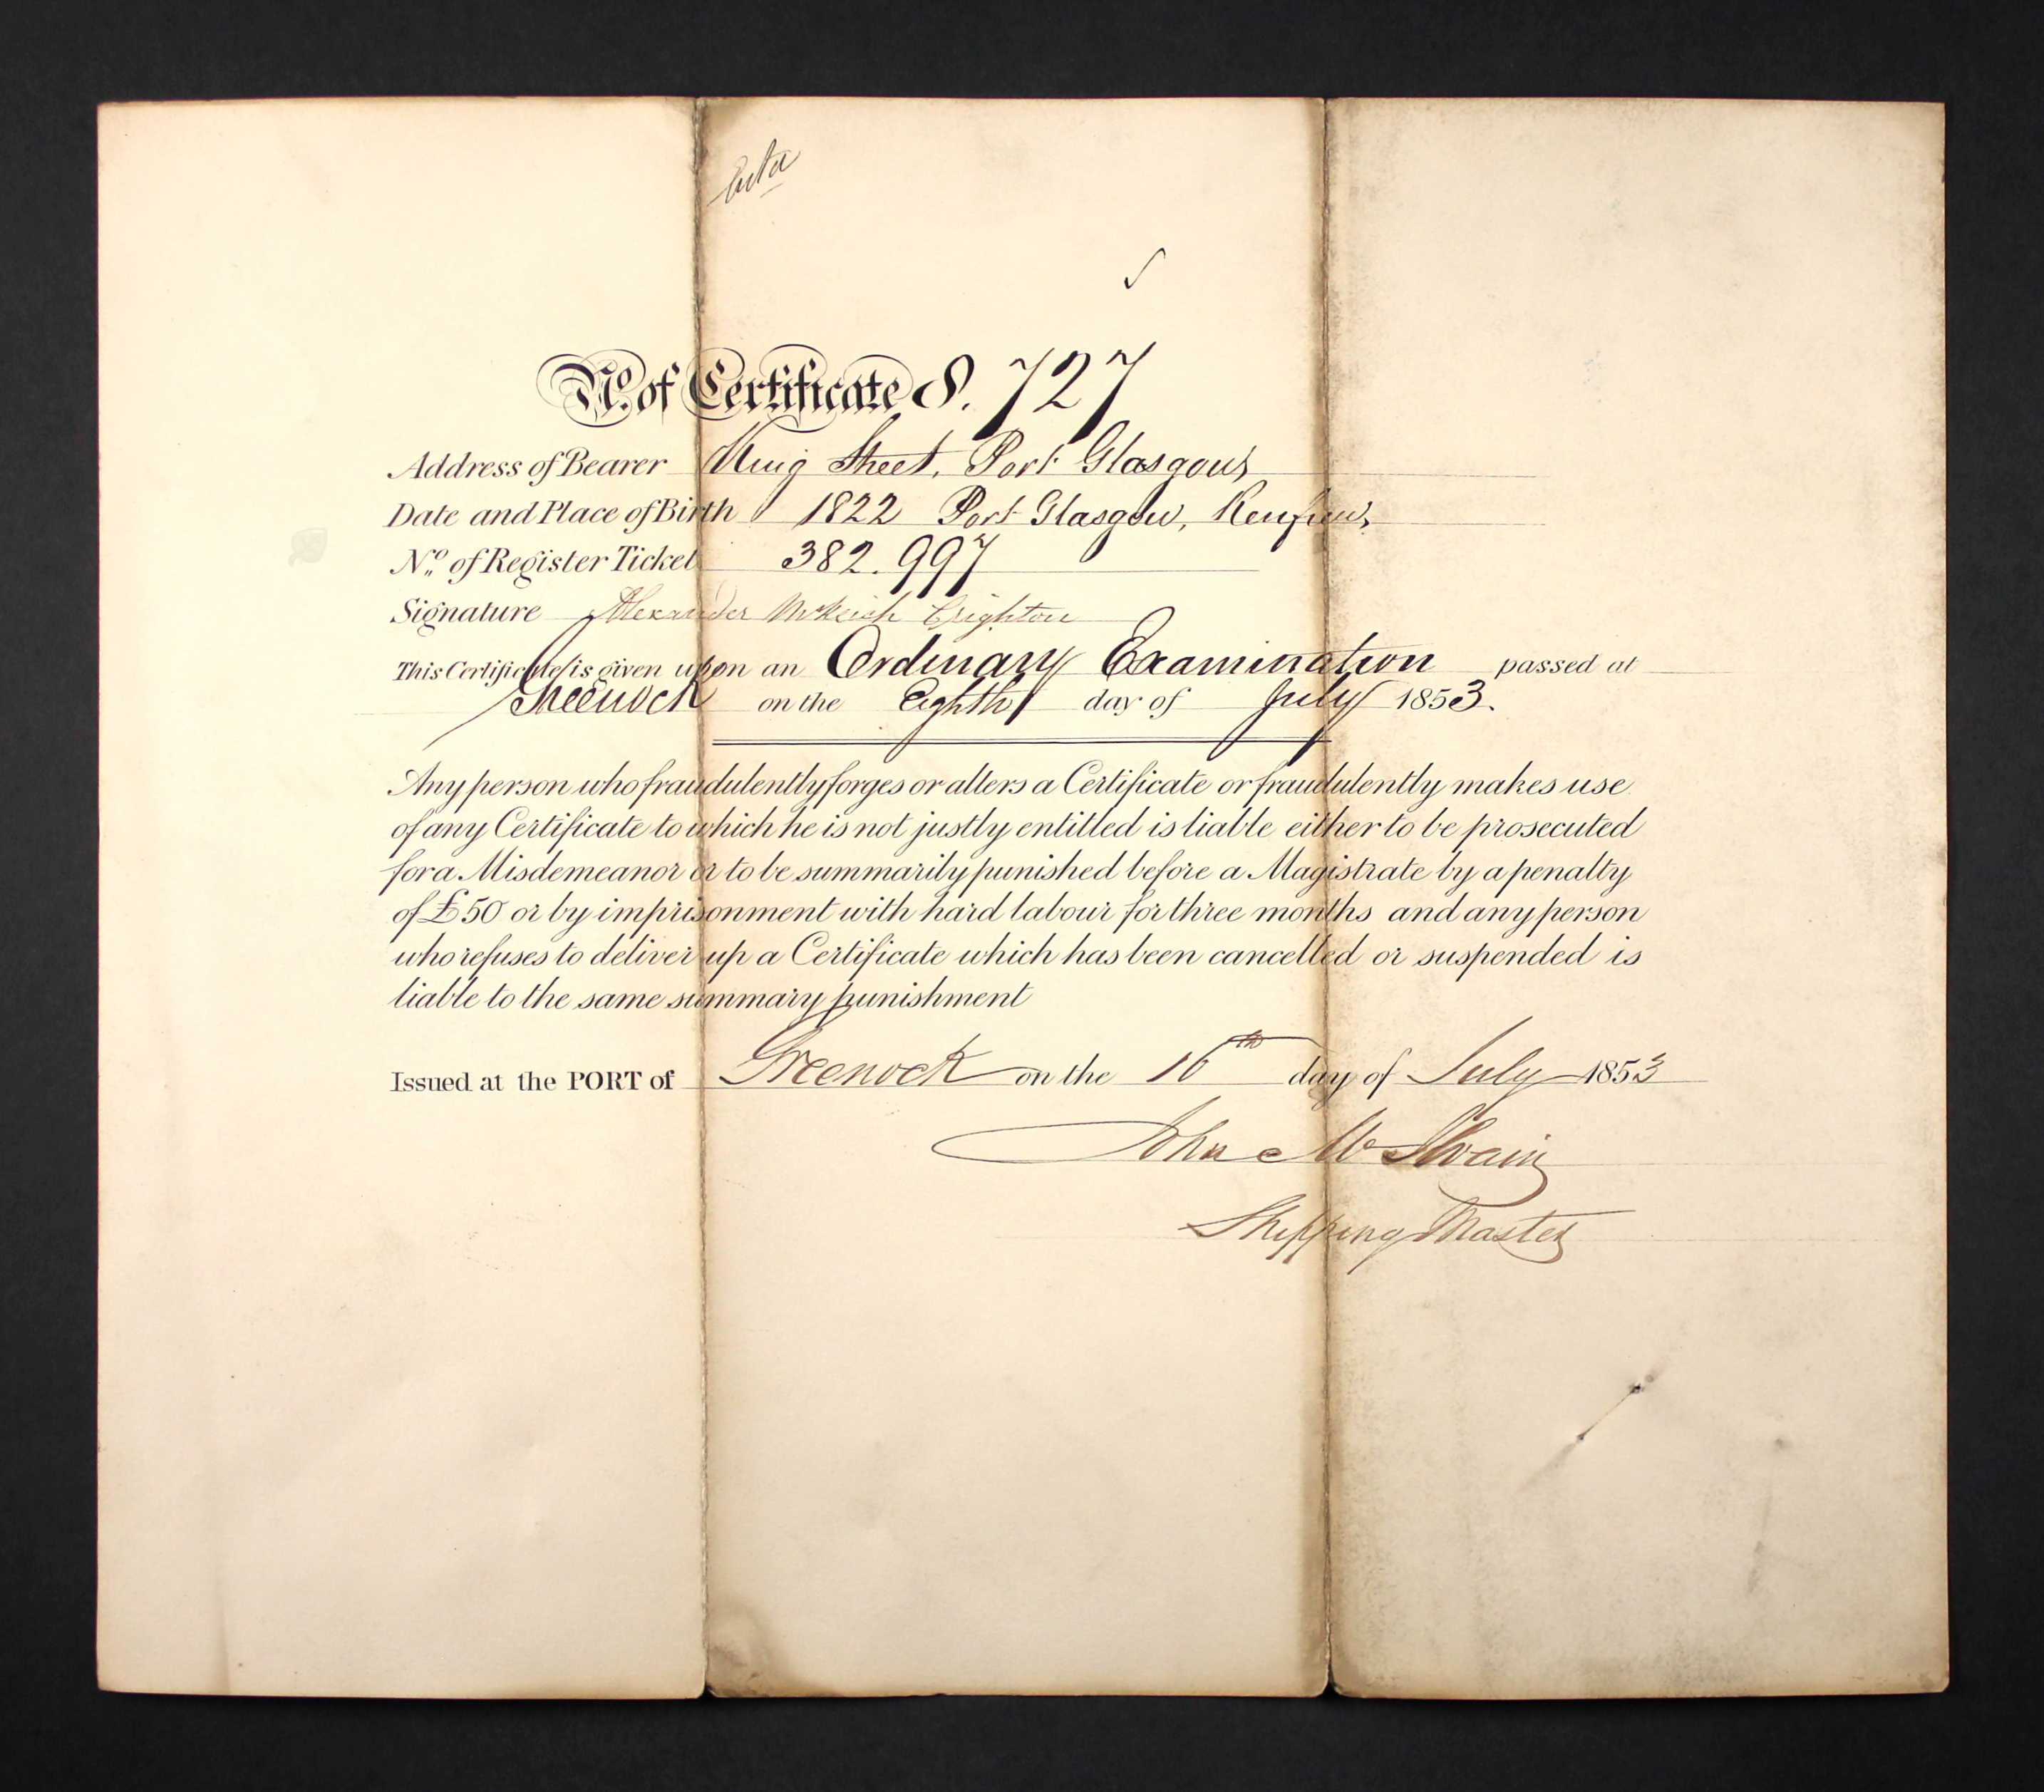 No. of Certificate 8. 727
Address of Bearer King Street, Port Glasgow
Date and Place of Birth 1822 Port Glasgow, Renfrew,
No. of Register Ticket 382.997
Signature Alexander McKeich Crighton
This Certificate is given upon an Ordinary Examination passed at
Greenock on the Eighth day of July 1853.
Any person who fraudulently forges or alters a Certificate or fraudulently makes use
of any Certificate to which he is not justly entitled is liable either to be prosecuted
for a Misdemeanor or to be summarily punished before a Magistrate by a penalty
of £50 or by imprisonment with hard labour for three months and any person
who refuses to deliver up a Certificate which has been cancelled or suspended is
liable to the same summary punishment
Issued at the PORT of Greenock on the 16th day of July 1853
John McIlvain
Shipping Master